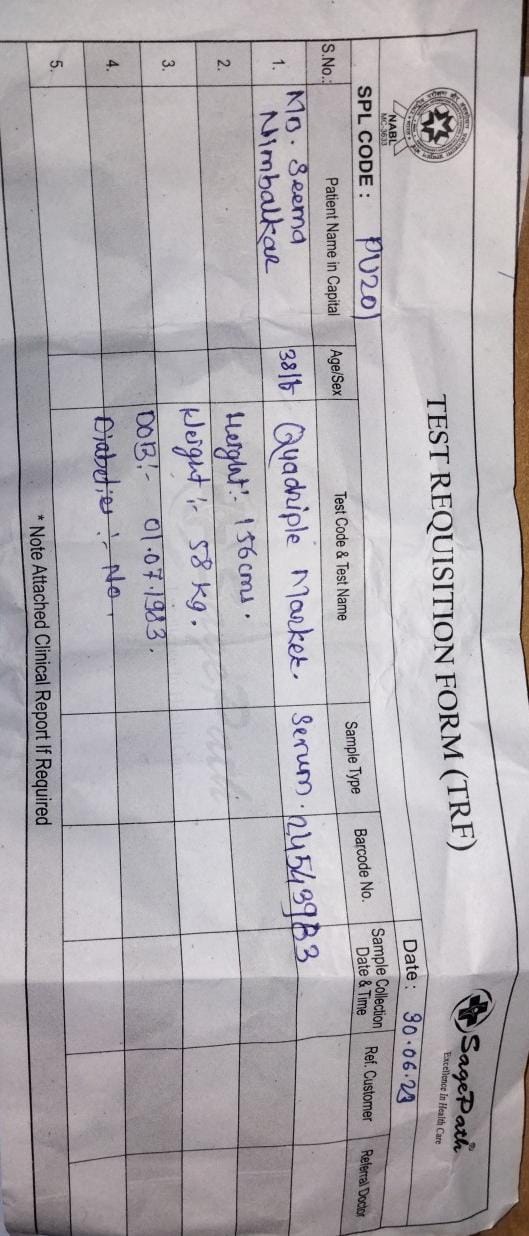 NABL
MC-3633
TEST REQUISITION FORM (TRF)
SagePath®
Excellence In Health Care
SPL CODE : PU201
Date : 30.06.23
S.No.: Patient Name in Capital Age/Sex Test Code & Test Name Sample Type Barcode No. Sample Collection Date & Time Ref. Customer Referral Doctor
1. Ms. Seema Nimbalkar 38/F Quadriple Marker. Serum. 24543983
2. Height:- 156cms.
3. Weight:- 58 kg.
4. DOB:- 01.07.1983.
5. Diabeties:- No
* Note Attached Clinical Report If Required